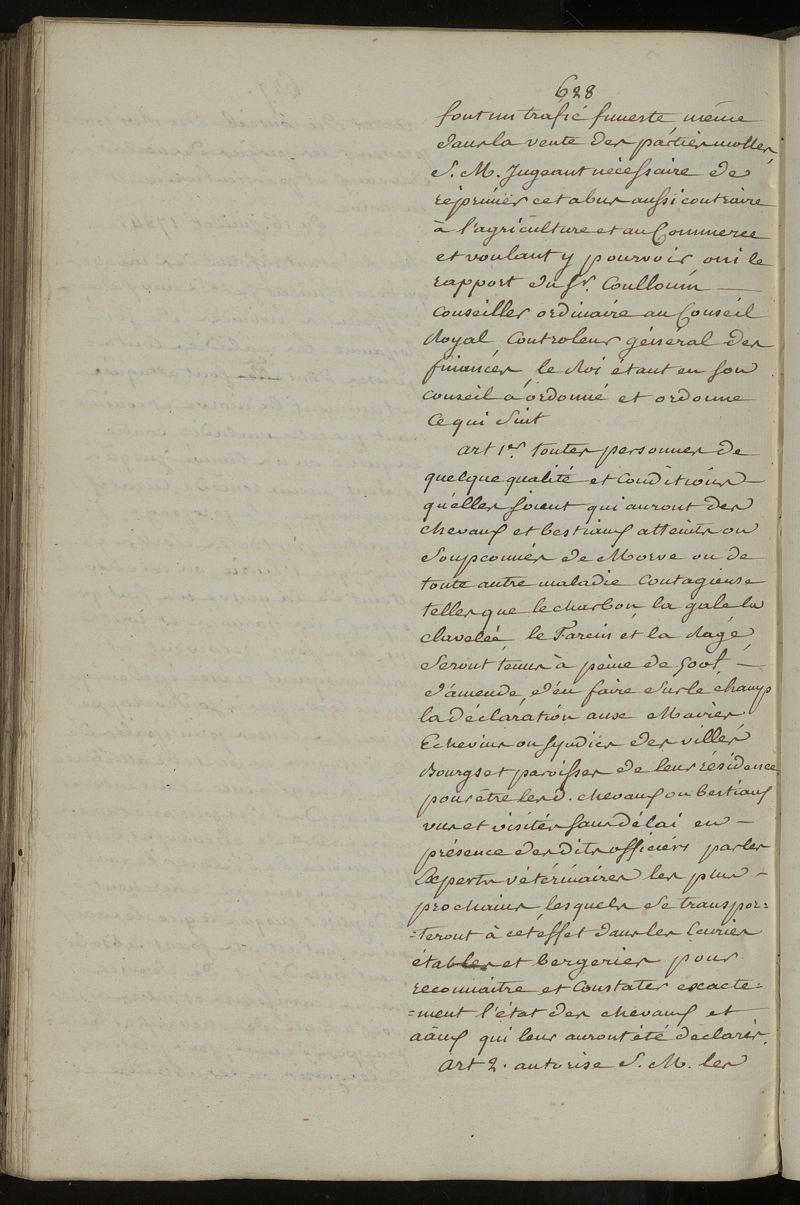 628
font un trafic funeste même
dans la vente des parties molles,
S. M. Jugeant nécessaire de
réprimer cet abus aussi contraire
à l'agriculture et au Commerce
et voulant y pourvoir oui le
rapport du Sr. Coullonin —
conseiller ordinaire au Conseil
Royal Controleur général des
finances le Roi étant en son
conseil à ordonné et ordonne
ce qui Suit
art 1er. toutes personnes de
quelque qualité et Conditions —
qu'elles soient qui auront des
chevaux et bestiaux atteints ou
Soupconnés de Morve ou de
toute autre maladie Contagieuse
telles que le charbon la gale la
clavelée le Farcin et la Rage
Seront tenus à peine de 500₶ —
d'amende, d'en faire Sur le champ
la déclaration aux Maires
Echevins ou Syndics des villes
Bourgs et paroisses de leur résidence
pour être lesd. chevaux ou bestiaux
vus et visités sans délai en —
présence des dits officiers par les
Experts vétérinaires les plus —
prochains, lesquels Se transpor=
=teront à cet éffet dans les Ecuries
étables et bergeries pour
reconnaitre et Constater exacte=
=ment l'état des chevaux et
aãux qui leur auront été déclarés.
art 2. autorise S. M. les